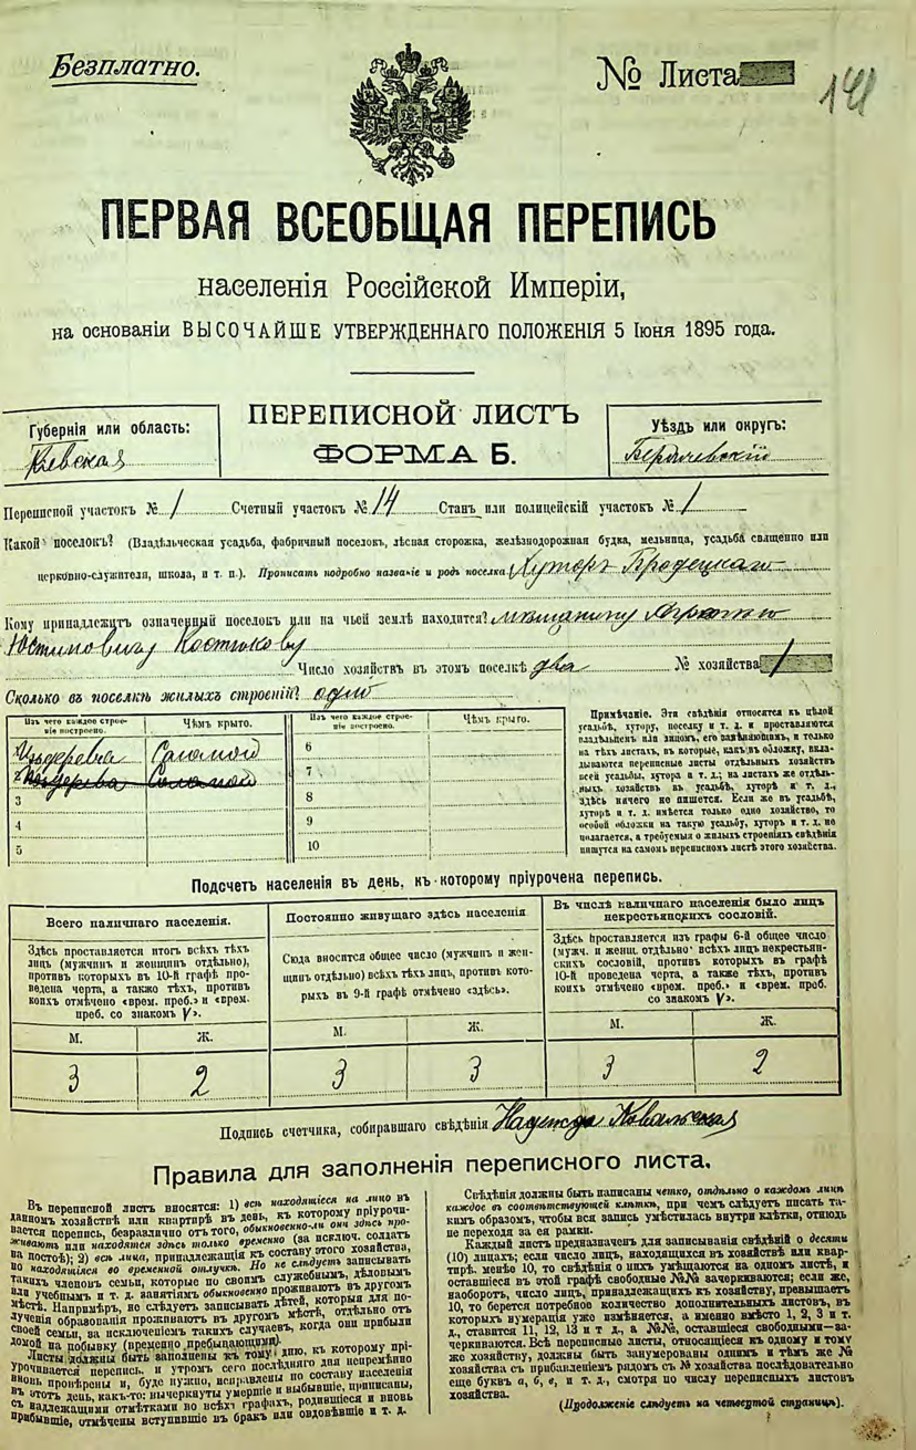 Безплатно.
№ Листа
141
ПЕРВАЯ ВСЕОБЩАЯ ПЕРЕПИСЬ
населенія Россійской Имперіи,
на основаніи ВЫСОЧАЙШЕ УТВЕРЖДЕННАГО ПОЛОЖЕНІЯ 5 Іюня 1895 года.
Губернія или область:
Кіевская
ПЕРЕПИСНОЙ ЛИСТЪ
ФОРМА Б.
Уѣздъ или округъ:
Бердичевскій
Переписной участокъ № 1 Счетный участокъ № 14 Станъ или полицейскій участокъ № 1
Какой поселокъ? (Владѣльческая усадьба, фабричный поселокъ, лѣсная сторожка, желѣзнодорожная будка, мельница, усадьба священно или
церковно-служителя, школа, и т. п.). Прописать подробно названіе и родъ поселка Хуторъ Бродецкаго
Кому принадлежитъ означенный поселокъ или на чьей землѣ находится? мѣщанину
Юстиновичу Костюкову
Число хозяйствъ въ этомъ поселкѣ два № хозяйства 1
Сколько въ поселкѣ жилыхъ строеній? одно
Изъ чего каждое строеніе построено.
Чѣмъ крыто.
Изъ чего каждое строеніе построено.
Чѣмъ крыто.
Издерева Соломой 6
2 Издерева Соломой 7
3 8
4 9
5 10
Примѣчаніе. Эти свѣдѣнія относятся къ цѣлой
усадьбѣ, хутору, поселку и т. д. и проставляются
владѣльцемъ или лицомъ, его замѣняющимъ, и только
на тѣхъ листахъ, въ которые, какъ въ обложку, вкла-
дываются переписные листы отдѣльныхъ хозяйствъ
всей усадьбы, хутора и т. д.; на листахъ же отдѣль-
ныхъ хозяйствъ въ усадьбѣ, хуторѣ и т. д.,
здѣсь ничего не пишется. Если же въ усадьбѣ,
хуторѣ и т. д. имѣется только одно хозяйство, то
особой обложки на такую усадьбу, хуторъ и т. д. не
полагается, а требуемыя о жилыхъ строеніяхъ свѣдѣнія
пишутся на самомъ переписномъ листѣ этого хозяйства.
Подсчетъ населенія въ день, къ которому пріурочена перепись.
Всего наличнаго населенія.
Здѣсь проставляется итогъ всѣхъ тѣхъ
лицъ (мужчинъ и женщинъ отдѣльно),
противъ которыхъ въ 10-й графѣ про-
ведена черта, а также тѣхъ, противъ
коихъ отмѣчено «врем. преб.» и «врем.
преб. со знакомъ V».
М. Ж.
3 2
Постоянно живущаго здѣсь населенія
Сюда вносится общее число (мужчинъ и жен-
щинъ отдѣльно) всѣхъ тѣхъ лицъ, противъ кото-
рыхъ въ 9-й графѣ отмѣчено «здѣсь».
М. Ж.
3 3
Въ числѣ наличнаго населенія было лицъ
некрестьянскихъ сословій.
Здѣсь проставляется изъ графы 6-й общее число
(мужч. и женщ. отдѣльно) всѣхъ лицъ некрестьян-
скихъ сословій, противъ которыхъ въ графѣ
10-й проведена черта, а также тѣхъ, противъ
коихъ отмѣчено «врем. преб.» и «врем. преб.
со знакомъ V».
М. Ж.
3 2
Подпись счетчика, собиравшаго свѣдѣнія Надежда Ковальская
Правила для заполненія переписного листа.
Въ переписной листъ вносятся: 1) всѣ находящіеся на лицо въ
данномъ хозяйствѣ или квартирѣ въ день, къ которому пріурочи-
вается перепись, безразлично отъ того, обыкновенно-ли они здѣсь про-
живаютъ или находятся здѣсь только временно (за исключ. солдатъ
на постоѣ); 2) всѣ лица, принадлежащія къ составу этого хозяйства,
но находящіяся во временной отлучкѣ. Но не слѣдуетъ записывать
такихъ членовъ семьи, которые по своимъ служебнымъ, дѣловымъ
или учебнымъ и т. д. занятіямъ обыкновенно проживаютъ въ другомъ
мѣстѣ. Напримѣръ, не слѣдуетъ записывать дѣтей, которыя для по-
лученія образованія проживаютъ въ другомъ мѣстѣ, отдѣльно отъ
своей семьи, за исключеніемъ такихъ случаевъ, когда они прибыли
домой на побывку (временно пребывающими).
Листы должны быть заполнены къ тому дню, къ которому прі-
урочивается перепись, и утромъ сего послѣдняго дня непремѣнно
вновь провѣрены и, буде нужно, исправлены по составу населенія
въ этотъ день, какъ-то: вычеркнуты умершіе и выбывшіе, приписаны,
съ надлежащими отмѣтками по всѣхъ графахъ, родившіеся и вновь
прибывшіе, отмѣчены вступившіе въ бракъ или овдовѣвшіе и т. д.
Свѣдѣнія должны быть написаны четко, отдѣльно о каждомъ лицѣ
каждое въ соотвѣтствующей клѣткѣ, при чемъ слѣдуетъ писать та-
кимъ образомъ, чтобы вся запись умѣстилась внутри клѣтки, отнюдь
не переходя за ея рамки.
Каждый листъ предназначенъ для записыванія свѣдѣній о десяти
(10) лицахъ; если число лицъ, находящихся въ хозяйствѣ или квар-
тирѣ. менѣе 10, то свѣдѣнія о нихъ умѣщаются на одномъ листѣ, и
оставшіеся въ этой графѣ свободные №№ зачеркиваются; если же,
наоборотъ, число лицъ, принадлежащихъ къ хозяйству, превышаетъ
10, то берется потребное количество дополнительныхъ листовъ, въ
которыхъ нумерація уже измѣняется, а именно вмѣсто 1, 2, 3 и т.
д., ставится 11, 12, 13 и т. д., а №№, оставшіеся свободными—за-
черкиваются. Всѣ переписные листы, относящіеся къ одному и тому
же хозяйству, должны быть занумерованы однимъ и тѣмъ же №
хозяйства съ прибавленіемъ рядомъ съ № хозяйства послѣдовательно
еще буквъ а, б, в, и т. д., смотря по числу переписныхъ листовъ
хозяйства.
(Продолженіе слѣдуетъ на четвертой страницѣ).